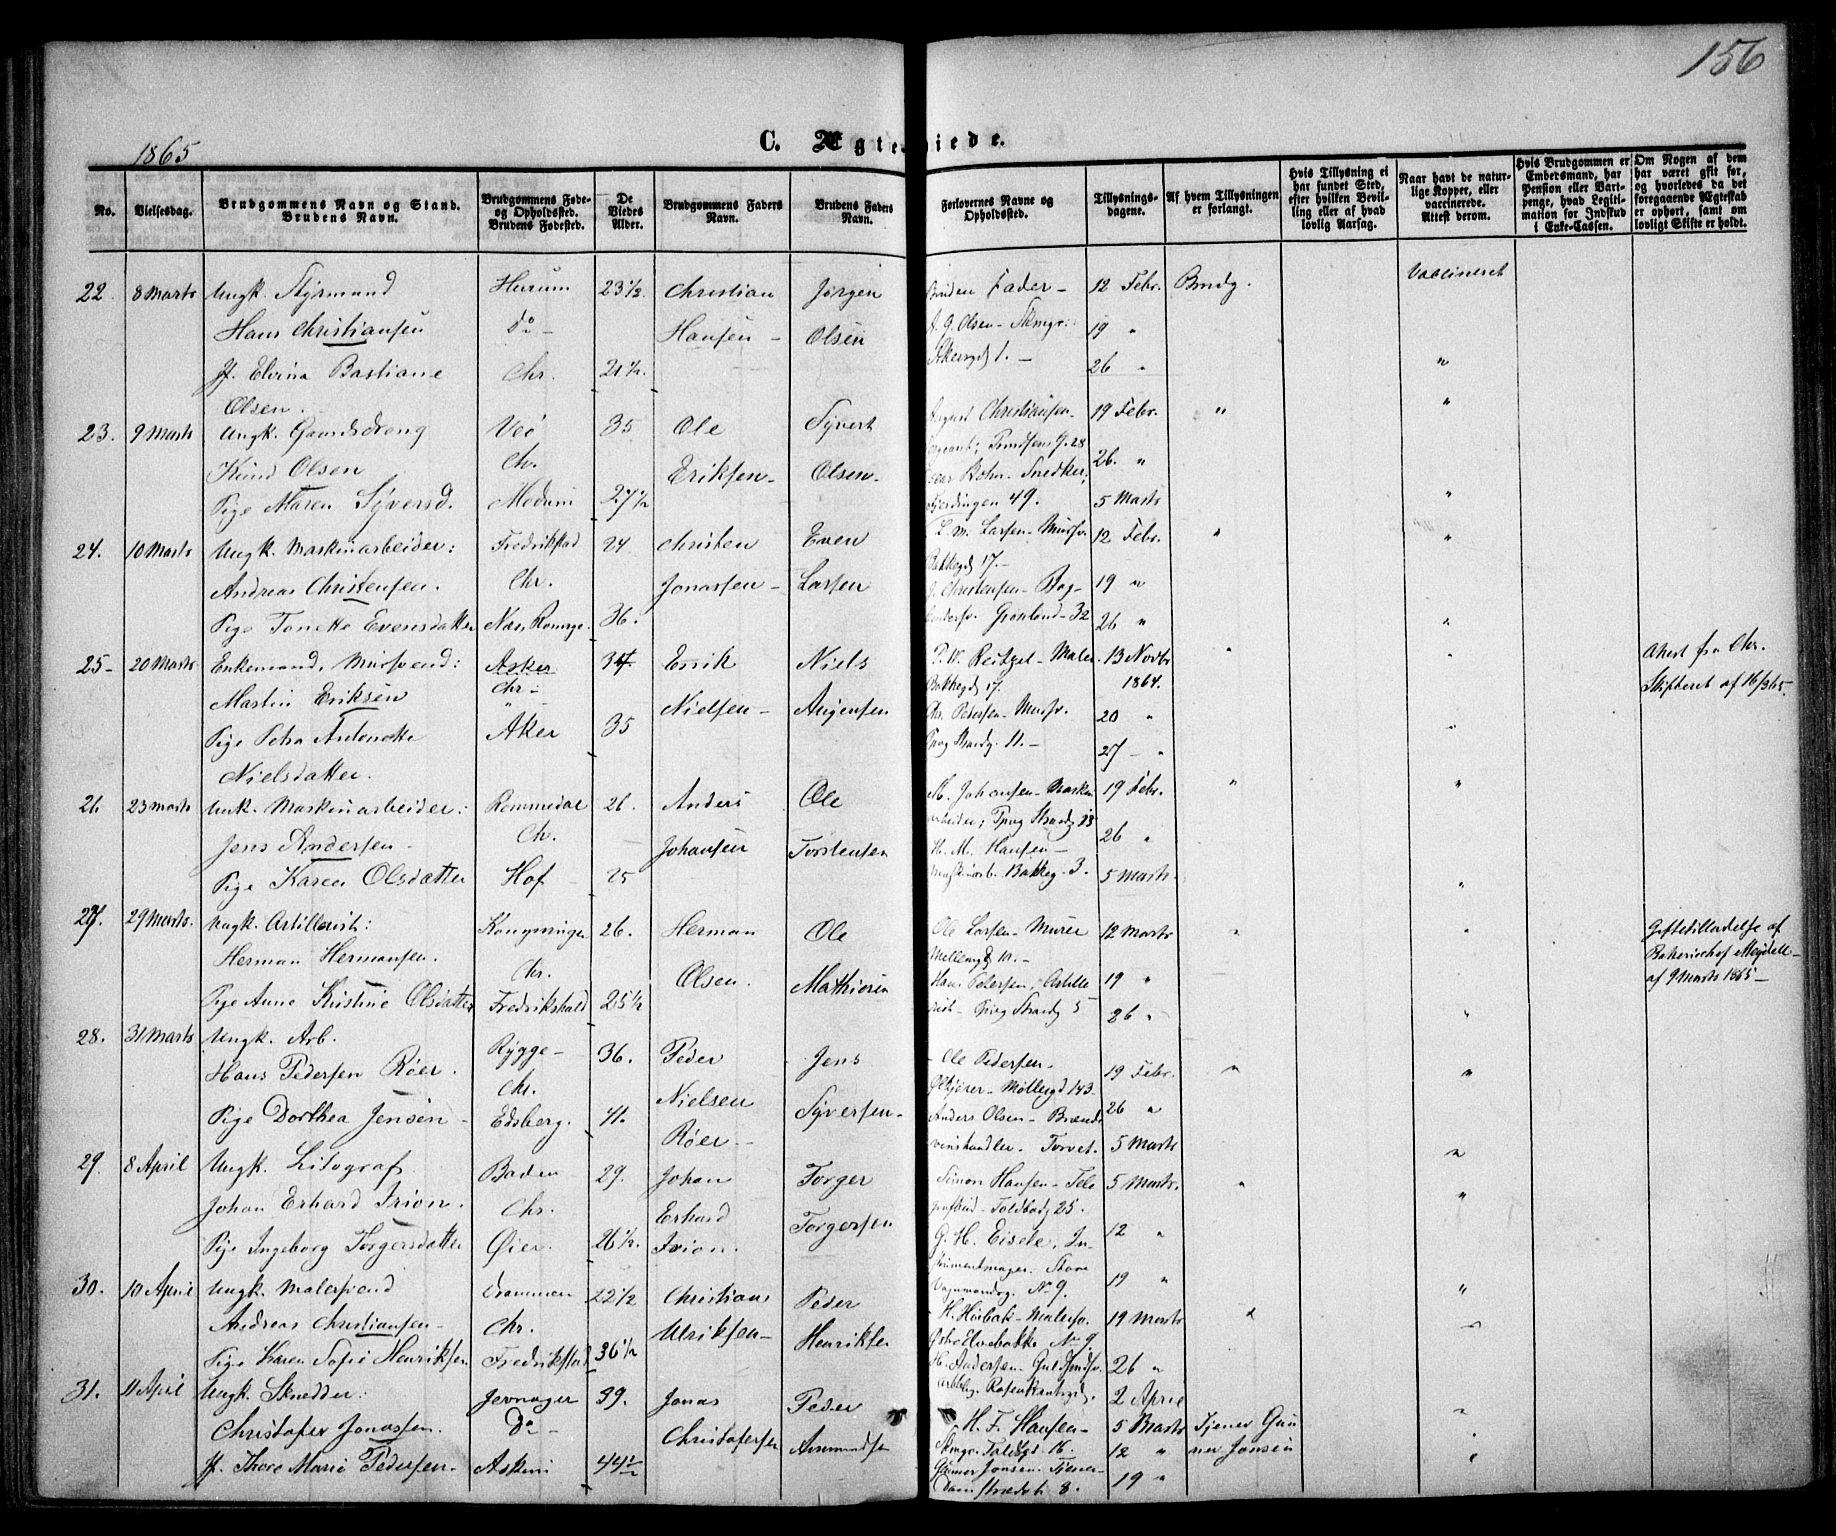 156
1865
C. Ægteskiede.
No.
Vielsesdag.
Brudgommens Navn og Stand.
Brudens Navn.
Brudgommens Føde-
og Opholdssted.
Brudens Fødested.
De
Viedes
Alder.
Brudgommens Faders
Navn.
Brudens Faders
Navn.
Forlovernes Navne og
Opholdssted.
Tillysnings-
dagene.
Af hvem Tillysningen
er forlangt.
Hvis Tillysning ei
har fundet Sted,
efter hvilken Bevil-
ling eller af hvad
lovlig Aarsag.
Naar havt de natur-
lige Kopper, eller
vaccinerede.
Attest derom.
Hvis Brudgommen er
Embedsmand, har
Pension eller Vart-
penge, hvad Legiti-
mation for Indskud
i Enke-Cassen.
Om Nogen af dem
har været gift før,
og hvorledes da det
foregaaende Ægteskab
er ophørt, samt om
lovligt Skifte er holdt.
22. 8 Marts Ungk. Styrmand Hurum 23½ Christian Jørgen Bruden Fader - 12 Febr. Brudg. Vaccineret
Hans Christiansen do - Hansen - Olsen J. G. Olsen - Skmgr: 19 "
Jf. Elvina Bastiane Chr. 21½. Akersgd 1. - 26 " "
Olsen.
23. 9 Marts Ungk. Gaardsdreng Veø 35 Ole Syvert August Christiansen - 19 Febr. " "
Knud Olsen Chr. Eriksen - Olsen - 26. "
Bohn. Snedker;
Pige Maren Syversd. Modum 27½ Fjerdingen 49. 5 Marts "
24. 10 Marts Ungk. Maskinarbeider: Fredrikstad 24 Christen Even L. M. Larsen - Mursv. 12 Febr. " "
Andreas Christensen. Chr. Jonassen - Larsen Bakkegd 17. -
Christensen - Bog- 19 "
Pige Tonette Evensdatter Næs, Romrge. 36. Grønland - 32 26 " "
25 - 20 Marts Enkemand, Mursvend: Asker 34 Errik Niels P. W. Reitzel - Maler - 13 Novbr " " Attest fra Chr.
Martin Eriksen Chr - Nielsen - Bakkegd 17. 1864. Skifteret af 16/3 65 -
Pige Petra Antonette Aker 35 Chr. Pedersen - Mursv. 20 " "
Nielsdatter. Strandg. 11. - 27 - "
26 23 Marts Unk. Maskinarbeider: Rommedal 26. Anders Ole M. Johansen - Maskin 19 Febr. " "
Jens Andersen - Chr. Johansen Torstensen arbeider; Strandg 13 26 "
H. M. Hansen -
Pige Karen Olsdatter Hof 25 Bakkeg. 3. 5 Marts - "
27. 29 Marts. Ungk. Artillerist: Kongvinger 26. Herman Ole Ole Larsen - Murer 12 Marts " " Giftetilladelse af
Herman Hermansen. Chr. Olsen. Mathiesen Møllergd 10. -
Hans Petersen, Artille 19 " af 9 Marts 1865 -
Pige Anne Kristine Olsdatter Fredrikshald 25½ rist - Strandg 5 26 " "
28. 31 Marts Ungk. Arb. Rygge - 36. Peder Jens - Ole Pedersen - 19 Febr. " "
Hans Pedersen Røer. Chr. Nielsen Møllergd 143.
Pige Dorthea Jensen - Edsberg. 41. Røer - Syversen - Anders Olsen - Brænde 26 "
vinshandler. Torvet. 5 Marts "
29. 8 April Ungk. Litograf Baden 29. Johan Torger Simon Hansen - Tele 5 Marts. " "
Johan Erhard Irion. Chr. Erhard Torgersen grafbud - Toldbodg 25.
Pige Ingeborg Torgersdatter Øier. 26½. Irion. G. H. Eisele. In- 12 "
strumentmager. Store
Vognmandsg. No 9. 19 "
30. 10 April Ungk. Malersvend Drammen 22½ Christian Peder - H. Høibak - Malersv. 19 Marts " "
Andreas Christiansen - Chr. Ulriksen - Henriksen No 9.
Pige Karen Sofie Henriksen Fredrikstad 36½ H. Andersen - Guldsmdsv. 26 "
Rosenkrantzgd. 2 April
31. 11 April Ungk. Skrædder: Jevnager 39. Jonas Peder - H. F. Hansen - 5 Marts Tjener Gun "
Christofer Jonassen. Do - Christofersen Amundsen Skmgr. Toldbgd - 16. 12 " ner Jonsen
Jf. Thore Marie Pedersen - Askim 44½ Gunner Jonsen - Tjener - 19 " "
Damstrædet 8.